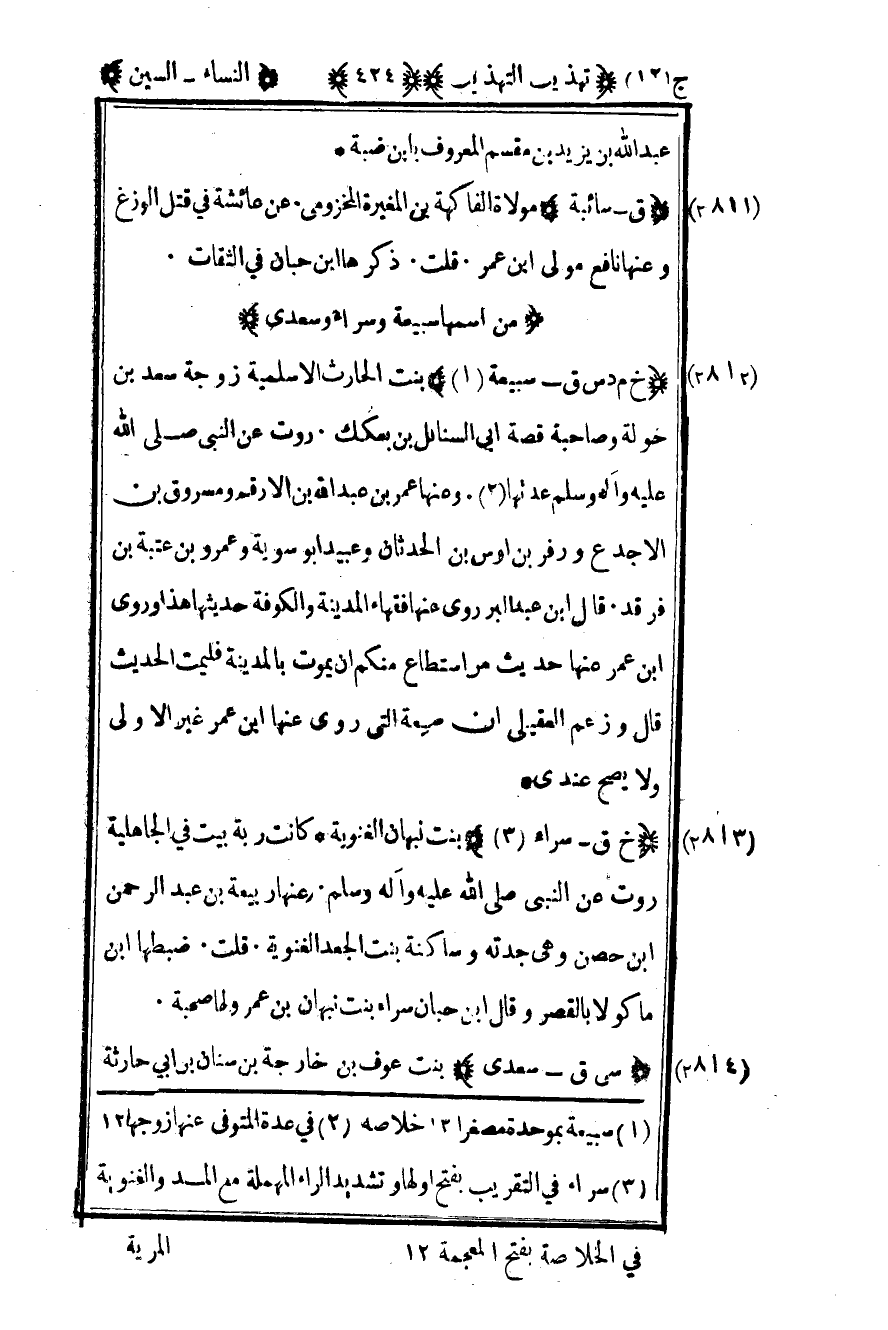 ج(١٢) ﴿ تهذيب التهذيب ﴾ ﴿ ٤٢٤ ﴾ ﴿ النساء - السين ﴾
عبدالله بن يزيد بن مقسم المعروف بابن ضبة *
(٢٨١١) ﴿ ق - سائبة ﴾ مولاة الفاكهة بن المغيرة المخزومى. عن عائشة في قتل الوزغ
وعنها نافع مولى ابن عمر . قلت . ذكرها ابن حبان في الثقات .
﴿ من اسمها سبيعة وسراء وسعدى ﴾
(٢٨١٢) ﴿ خ م د س ق - سبيعة (١) ﴾ بنت الحارث الاسلمية زوجة سعد بن
خولة وصاحبة قصة ابي السنابل بن بعكك . روت عن النبى صلى الله
عليه وآله وسلم عدتها (٢) . وعنها عمر بن عبدالله بن الارقم ومسروق بن
الاجدع وزفر بن اوس بن الحدثان وعبيد ابو سوية وعمرو بن عتبة بن
فرقد . قال ابن عبدالبر روى عنها فقهاء المدينة والكوفة حديثها هذا وروى
ابن عمر عنها حديث من استطاع منكم ان يموت بالمدينة فليمت الحديث
قال وزعم العقيلي ان سبيعة التى روى عنها ابن عمر غير الاولى
ولا يصح عندى *
(٢٨١٣) ﴿ خ ق - سراء (٣) ﴾ بنت نبهان الغنوية * كانت ربة بيت في الجاهلية
روت عن النبى صلى الله عليه وآله وسلم . وعنها ربيعة بن عبد الرحمن
ابن حصن وهى جدته وساكنة بنت الجعد الغنوية . قلت . ضبطها ابن
ماكولا بالقصر وقال ابن حبان سراء بنت نبهان بن عمر ولها صحبة .
(٢٨١٤) ﴿ سى ق - سعدى ﴾ بنت عوف بن خارجة بن سنان بن ابي حارثة
(١) سبيعة بموحدة مصغرا ١٢ خلاصه (٢) في عدة المتوفى عنها زوجها ١٢
(٣) سراء في التقريب بفتح اولها وتشديد الراء المهملة مع المد والغنوية
في الخلاصة بفتح المعجمة ١٢ المرية